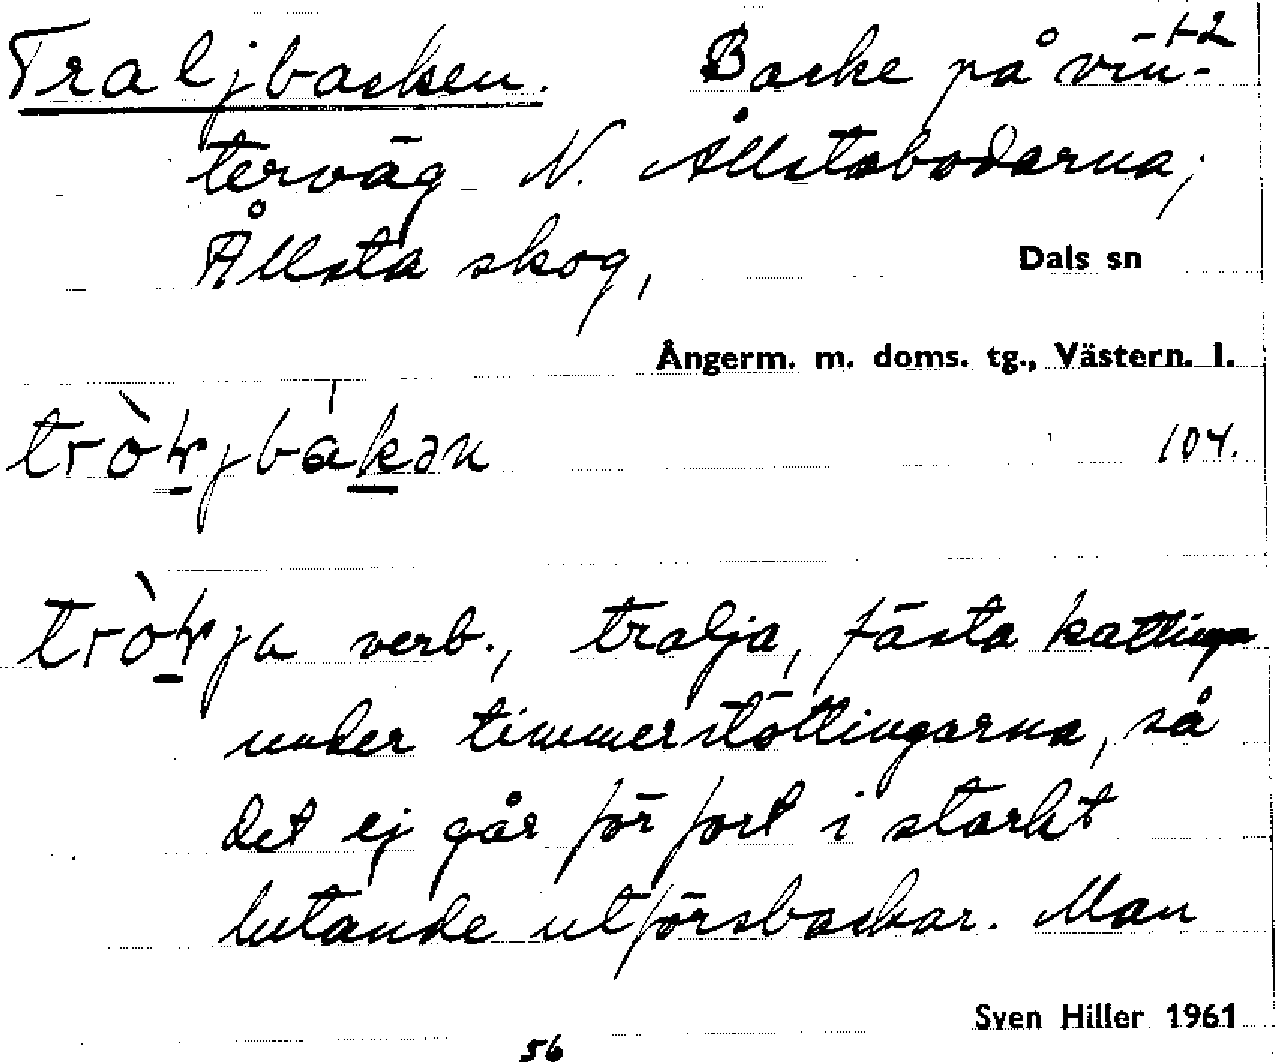 Traljbacken. Backe på vin- 1-2
terväg N. Ållstabodarna;
Ållsta skog,
Dals sn
Ångerm. m. doms. tg., Västern. l.
104.
verb., tralja, fästa kättinga
under timmerstöttingarna, så
det ej går för fort i starkt
lutande utförsbackar. Man
Sven Hiller 1961
56